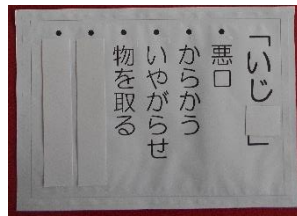 「いじ」
・悪口
・からかう
・いやがらせ
・物を取る
・
・